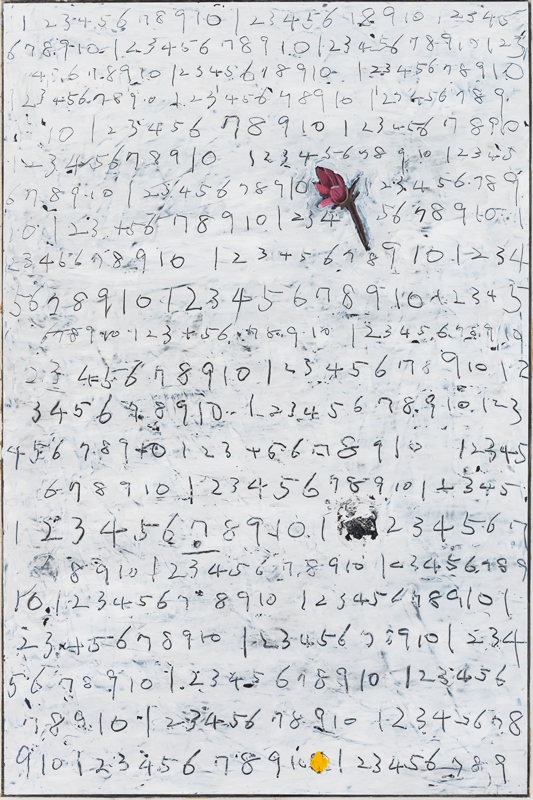 1 2 3 4 5 6 7 8 9 10 1 2 3 4 5 6 7 8 9 10 1 2 3 4 5 6
6 7 8 9 10 1 2 3 4 5 6 7 8 9 10 1 2 3 4 5 6 7 8 9 10 1 2 3
4 5 6 7 8 9 10 1 2 3 4 5 6 7 8 9 10 1 2 3 4 5 6 7 8 9 10
1 2 3 4 5 6 7 8 9 10 1 2 3 4 5 6 7 8 9 10 1 2 3 4 5 6 7 8 9
10 1 2 3 4 5 6 7 8 9 10 1 2 3 4 5 6 7 8 9 10
1 2 3 4 5 6 7 8 9 10 1 2 3 4 5 6 7 8 9 10 1 2 3 4 5
6 7 8 9 10 1 2 3 4 5 6 7 8 9 10 1 2 3 4 5 6 7 8 9
10 1 2 3 4 5 6 7 8 9 10 1 2 3 4 5 6 7 8 9 10 1
2 3 4 5 6 7 8 9 10 1 2 3 4 5 6 7 8 9 10 1 2 3 4
5 6 7 8 9 10 1 2 3 4 5 6 7 8 9 10 1 2 3 4 5
6 7 8 9 10 1 2 3 4 5 6 7 8 9 10 1 2 3 4 5 6 7 8 9 10
2 3 4 5 6 7 8 9 10 1 2 3 4 5 6 7 8 9 10 1 2
3 4 5 6 7 8 9 10 1 2 3 4 5 6 7 8 9 10 1 2 3
4 5 6 7 8 9 10 1 2 3 4 5 6 7 8 9 10 1 2 3 4 5
6 7 8 9 10 1 2 3 4 5 6 7 8 9 10 1 2 3 4 5
1 2 3 4 5 6 7 8 9 10 1 2 3 4 5 6 7
8 9 10 1 2 3 4 5 6 7 8 9 10 1 2 3 4 5 6 7 8 9
10 1 2 3 4 5 6 7 8 9 10 1 2 3 4 5 6 7 8 9 10 1
2 3 4 5 6 7 8 9 10 1 2 3 4 5 6 7 8 9 10 1 2 3 4
5 6 7 8 9 10 1 2 3 4 5 6 7 8 9 10 1 2 3 4 5 6
7 8 9 10 1 2 3 4 5 6 7 8 9 10 1 2 3 4 5 6 7 8
9 10 1 2 3 4 5 6 7 8 9 10 1 2 3 4 5 6 7 8 9